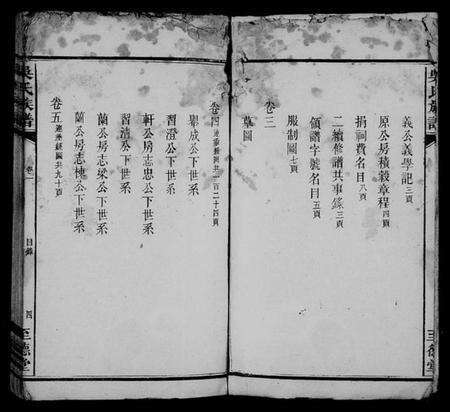 至德堂
義公義學記三頁
原公房積穀章程四頁
捐祠費名目八頁
二續修譜共事錄三頁
領譜字號名目五頁
服制圖七頁
卷三
墓圖
卷四 共三百二十四頁
成公下世系
習澄公下世系
軒公房志忠公下世系
習清公下世系
蘭公房志梁公下世系
蘭公房志棟公下世系
卷五 圖共九十頁
吳氏族譜
卷一
目錄
四
至德堂